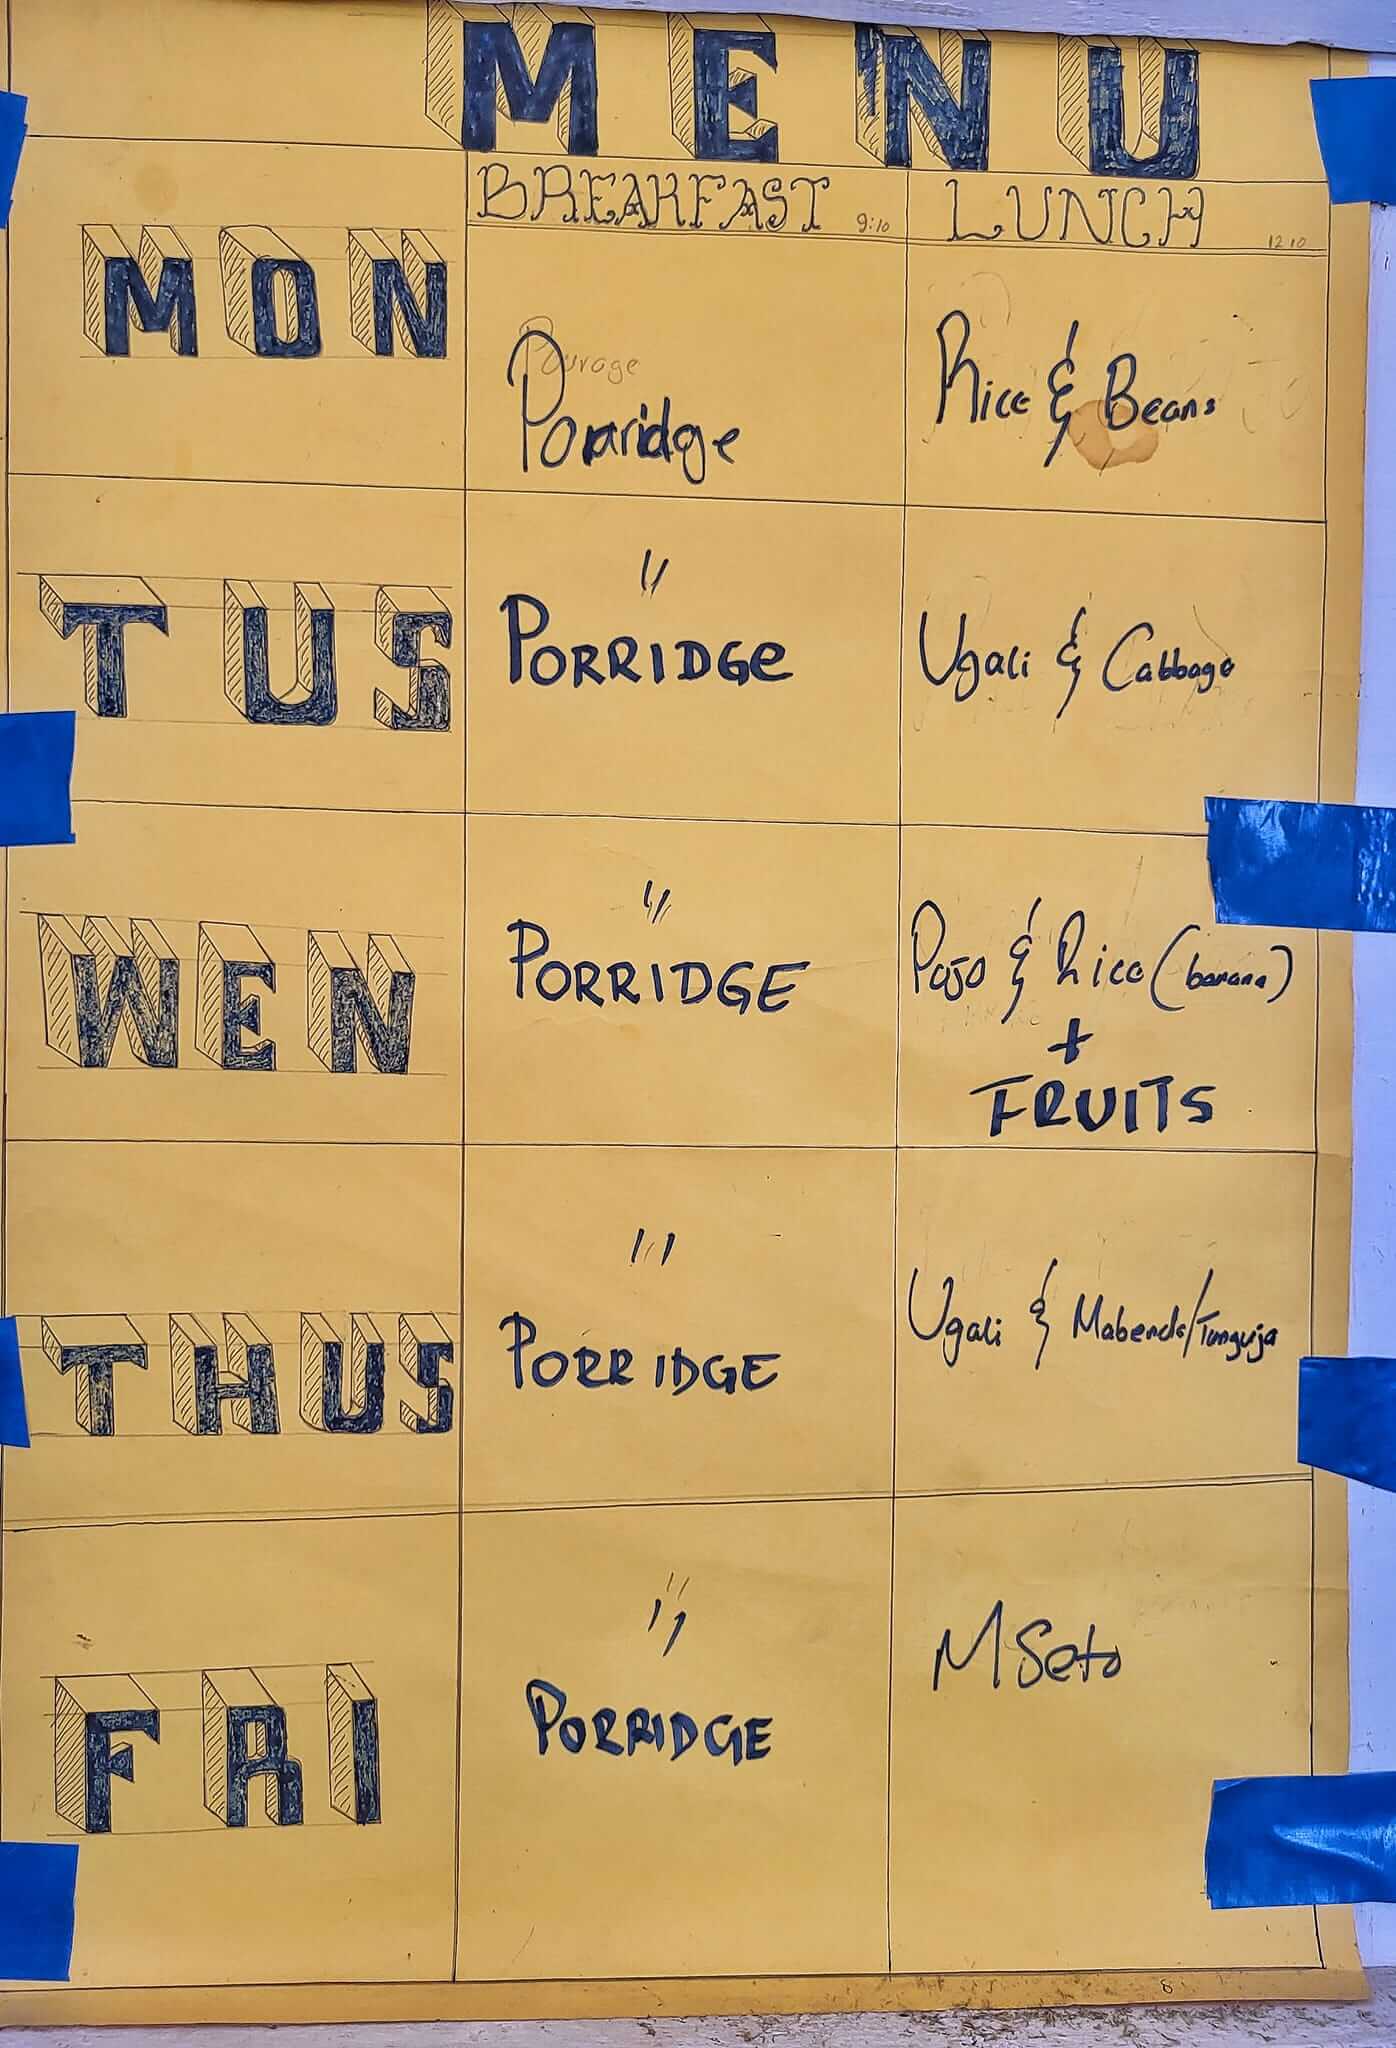 MENU
BREAKFAST 9:10 LUNCH 12 10
MON
Porridge
Rice & Beans
TUS
"
PORRIDGe
Ugali & Cabbage
WEN
"
PORRIDGE
Pojo & Rice (banana)
+
FRUITS
THUS
"
PORRIDGE
Ugali & Mabenda/Tunguja
FRI
"
PORRIDGE
MSeto
8